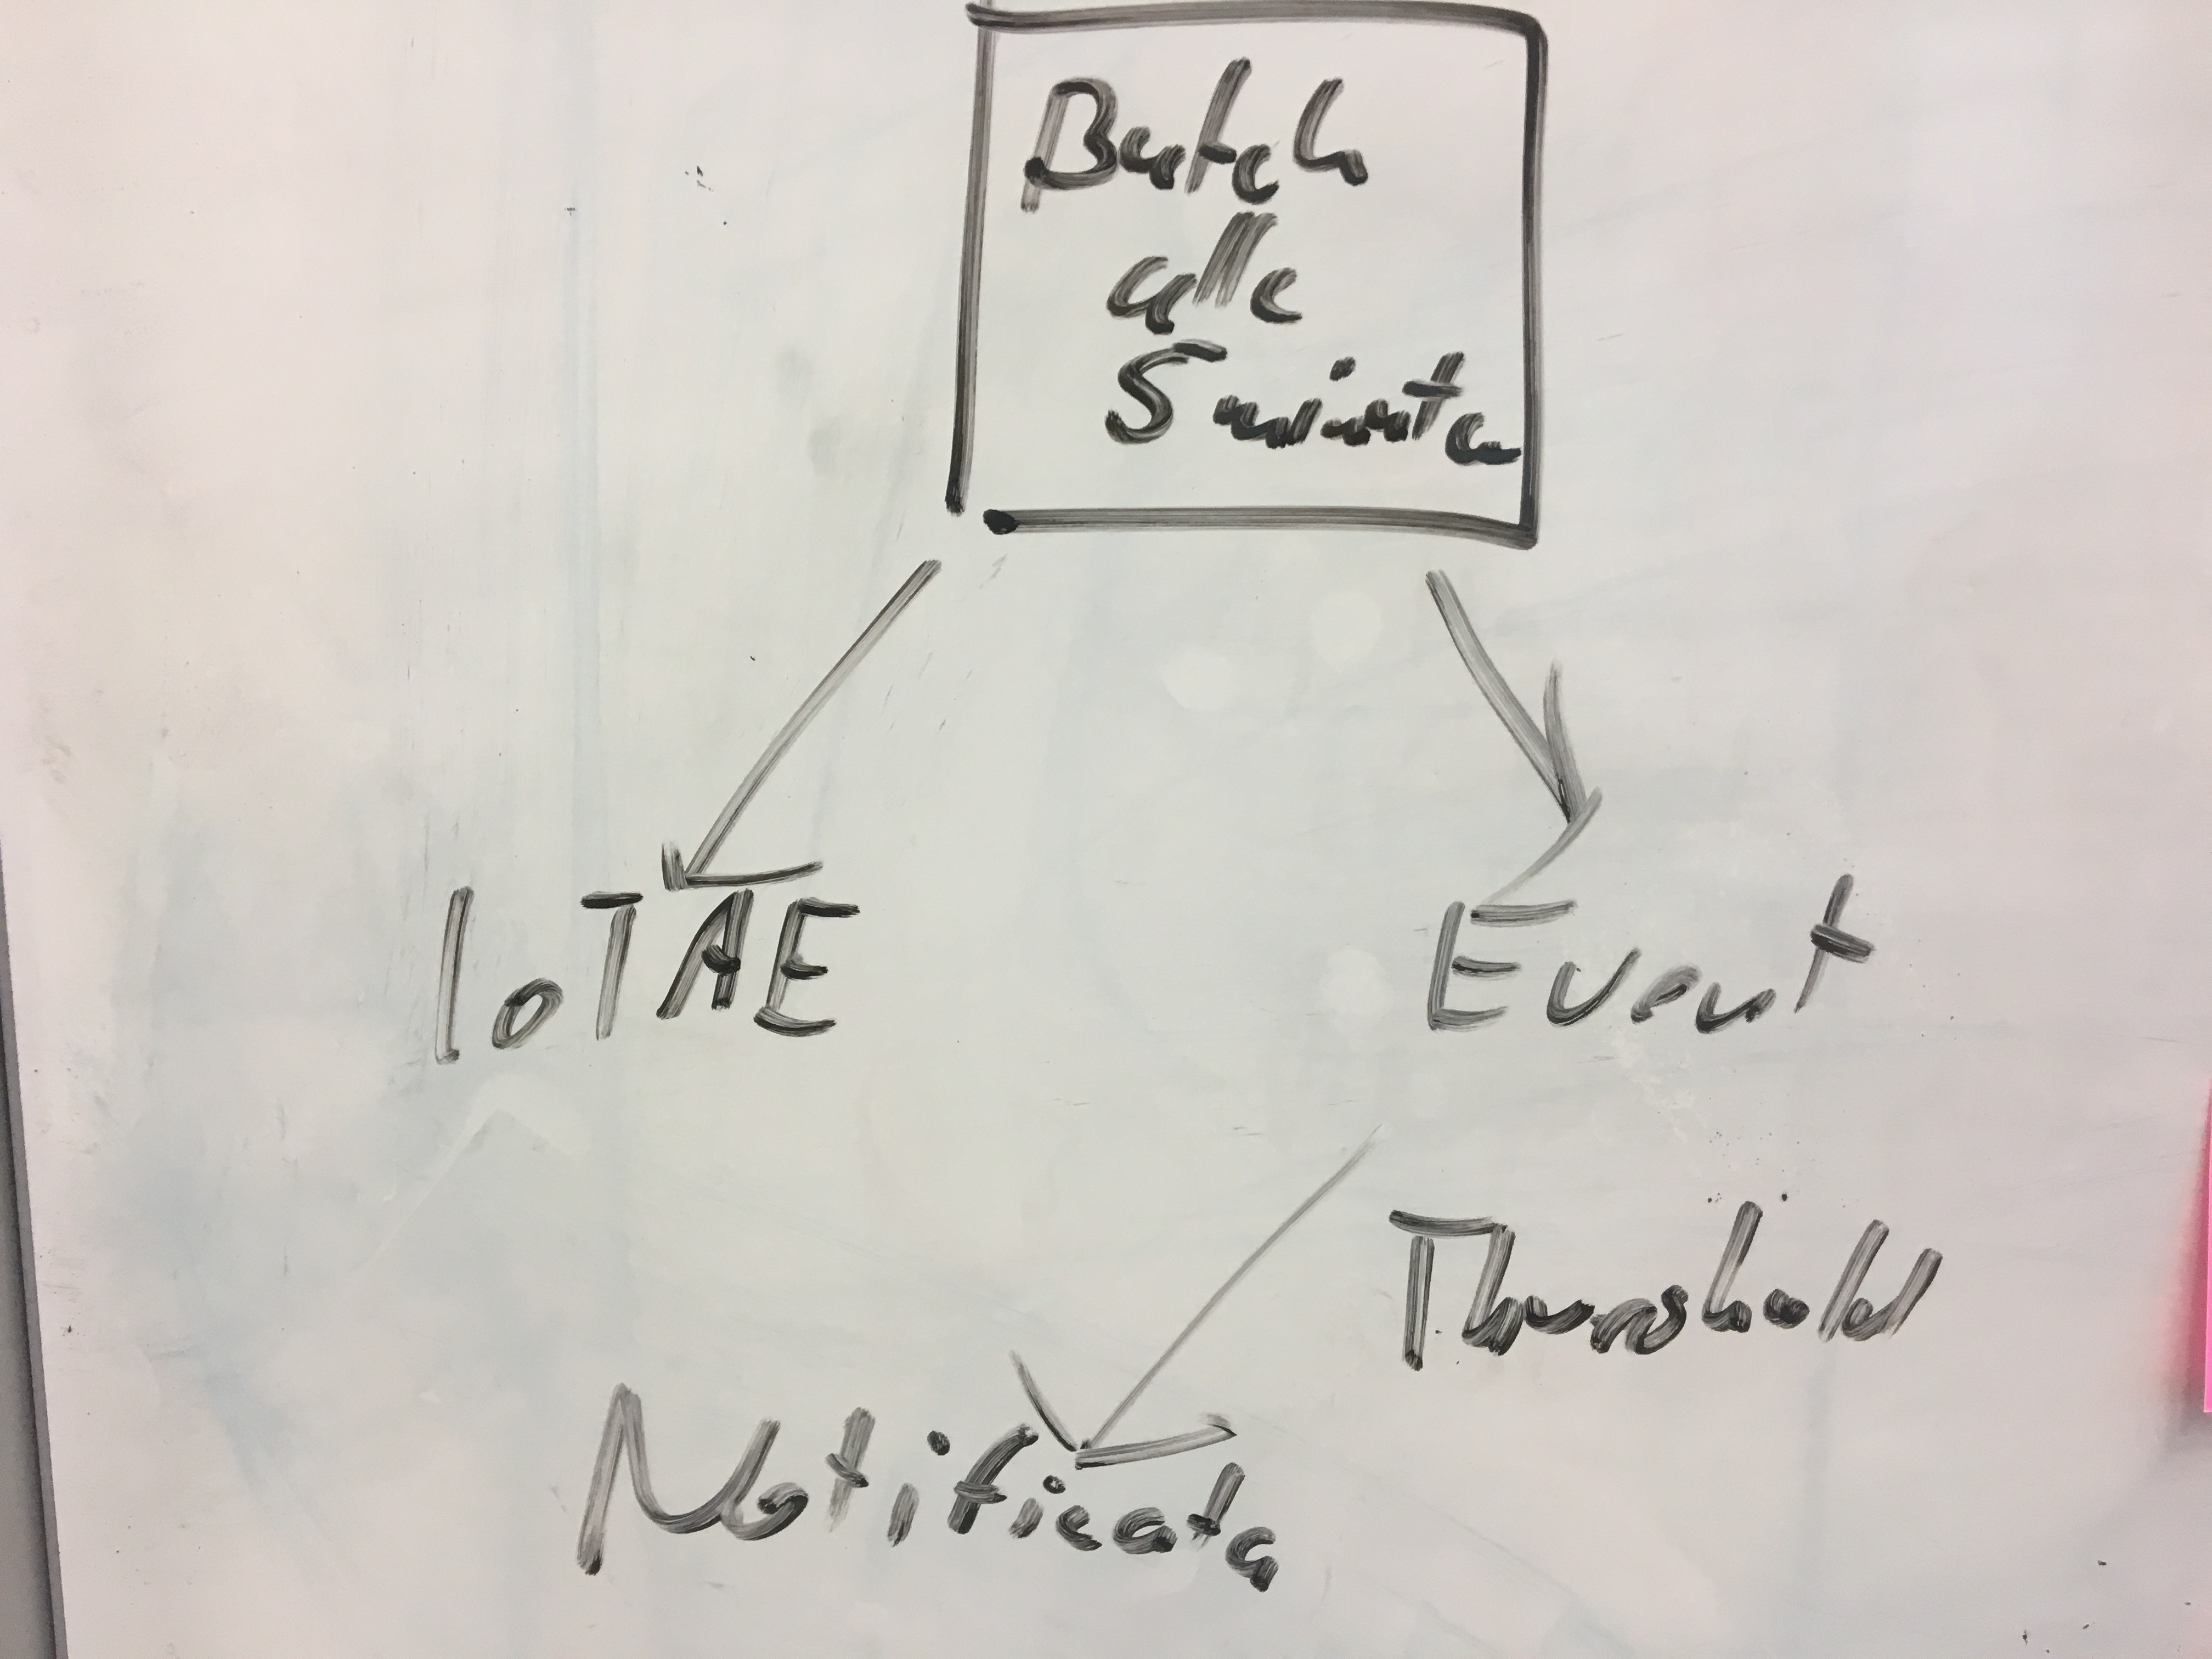 Batch
alle
5 minuten
IoTAE
Event
Threshold
Notification